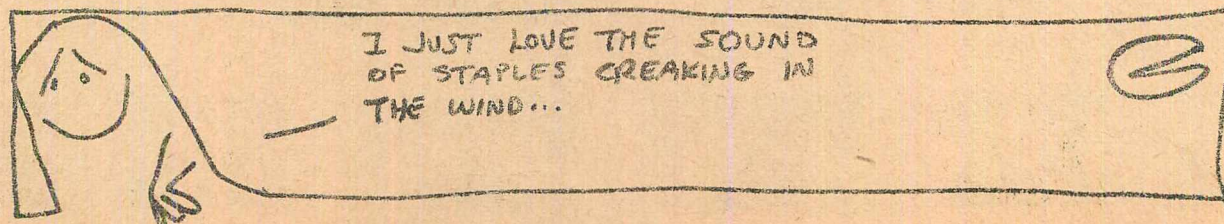 I JUST LOVE THE SOUND
OF STAPLES CREAKING IN
THE WIND...